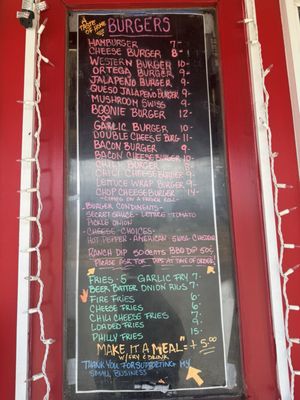 A TASTE OF HOME
BURGERS
HAMBURGER 7-
CHEESE BURGER 8-
WESTERN BURGER 10-
ORTEGA BURGER 9-
JALAPENO BURGER 9-
QUESO JALAPENO BURGER 9-
MUSHROOM SWISS 9-
BOONIE BURGER 12-
GARLIC BURGER 10-
DOUBLE CHEESE BURG 11-
BACON BURGER 9-
BACON CHEESE BURGER 10-
CHILI BURGER
CHILI CHEESE BURGER 9-
LETTUCE WRAP BURGER 9-
CHOP CHEESE BURGER 14-
COMES ON A FRENCH ROLL
BURGER CONDIMENTS-
SECRET SAUCE - LETTUCE - TOMATO
PICKLE ONION
CHEESE CHOICES-
HOT PEPPER - AMERICAN - SWISS - CHEDDAR
RANCH DIP 50 CENTS BBQ DIP 50¢
PLEASE ASK FOR DIPS AT TIME OF ORDER
FRIES - 5 GARLIC FRY 7-
BEER BATTER ONION RIGS 7-
FIRE FRIES 6-
CHEESE FRIES 6-
CHILI CHEESE FRIES 7-
LOADED FRIES 9-
PHILLY FRIES 15-
"MAKE IT A MEAL" + 5.00
W/FRY & DRINK
THANK YOU FOR SUPPORTING MY
SMALL BUSINESS